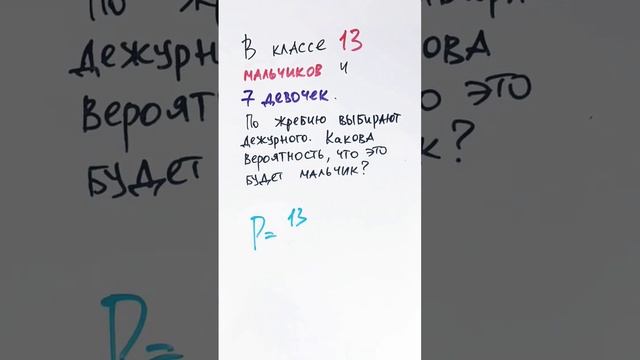 В классе 13
мальчиков и
7 девочек.
По жребию выбирают
дежурного. Какова
вероятность, что это
будет мальчик?
P= 13